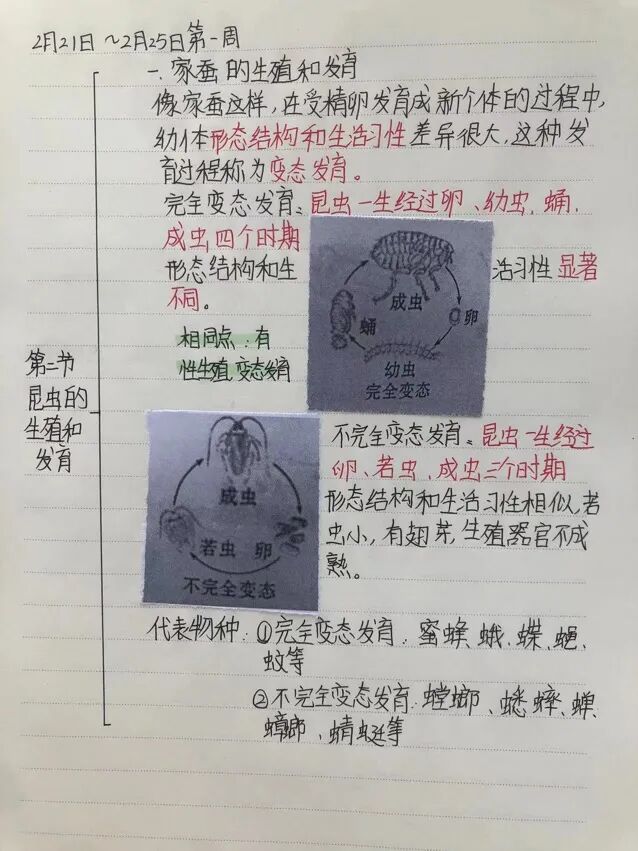 2月21日～2月25日第一周
一.家蚕的生殖和发育
像家蚕这样,在受精卵发育成新个体的过程中,
幼体形态结构和生活习性差异很大,这种发
育过程称为变态发育。
完全变态发育、昆虫一生经过卵、幼虫、蛹、
成虫四个时期
形态结构和生活习性显著
不同。
相同点:有
性生殖,变态发育
成虫
卵
蛹
幼虫
完全变态
第二节
昆虫的
生殖和
发育
不完全变态发育、昆虫一生经过
卵、若虫、成虫三个时期
形态结构和生活习性相似,若
虫小,有翅芽,生殖器官不成
熟。
成虫
若虫
卵
不完全变态
代表物种:①完全变态发育:蜜蜂、蛾、蝶、
蚊等
②不完全变态发育:螳螂、蟋蟀、蝉、
蟑螂、蜻蜓等